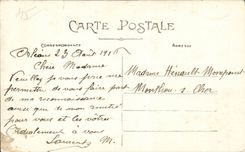 CARTE POSTALE
CORRESPONDANCE
ADRESSE
Orléans 23 Août 191
Chère Madame
Veuillez je vous prie me
permettre de vous faire part
de ma reconnaissance
ainsi que de mon
pour vous et les vôtres
Cordialement à vous
Laurent M.
Madame Hénault
Monthou s Cher